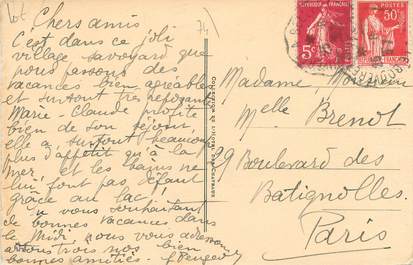 Lot
74
Chers amis
C'est dans ce joli
village savoyard que
nous passons des
vacances bien agréables
et surtout très reposantes
Marie-Claude profite
bien de son séjour,
elle a surtout beaucoup
plus d'appétit qu'à la
mer, et les bains ne
lui font pas défaut
grâce au lac !
En vous souhaitant
de bonnes vacances dans
le Midi, nous vous adressons
à tous trois nos bien
bonnes amitiés.
REPUBLIQUE FRANCAISE
5c
POSTES
50c
Madame, Monsieur
Melle Brenot
29 Boulevard des
Batignolles
Paris